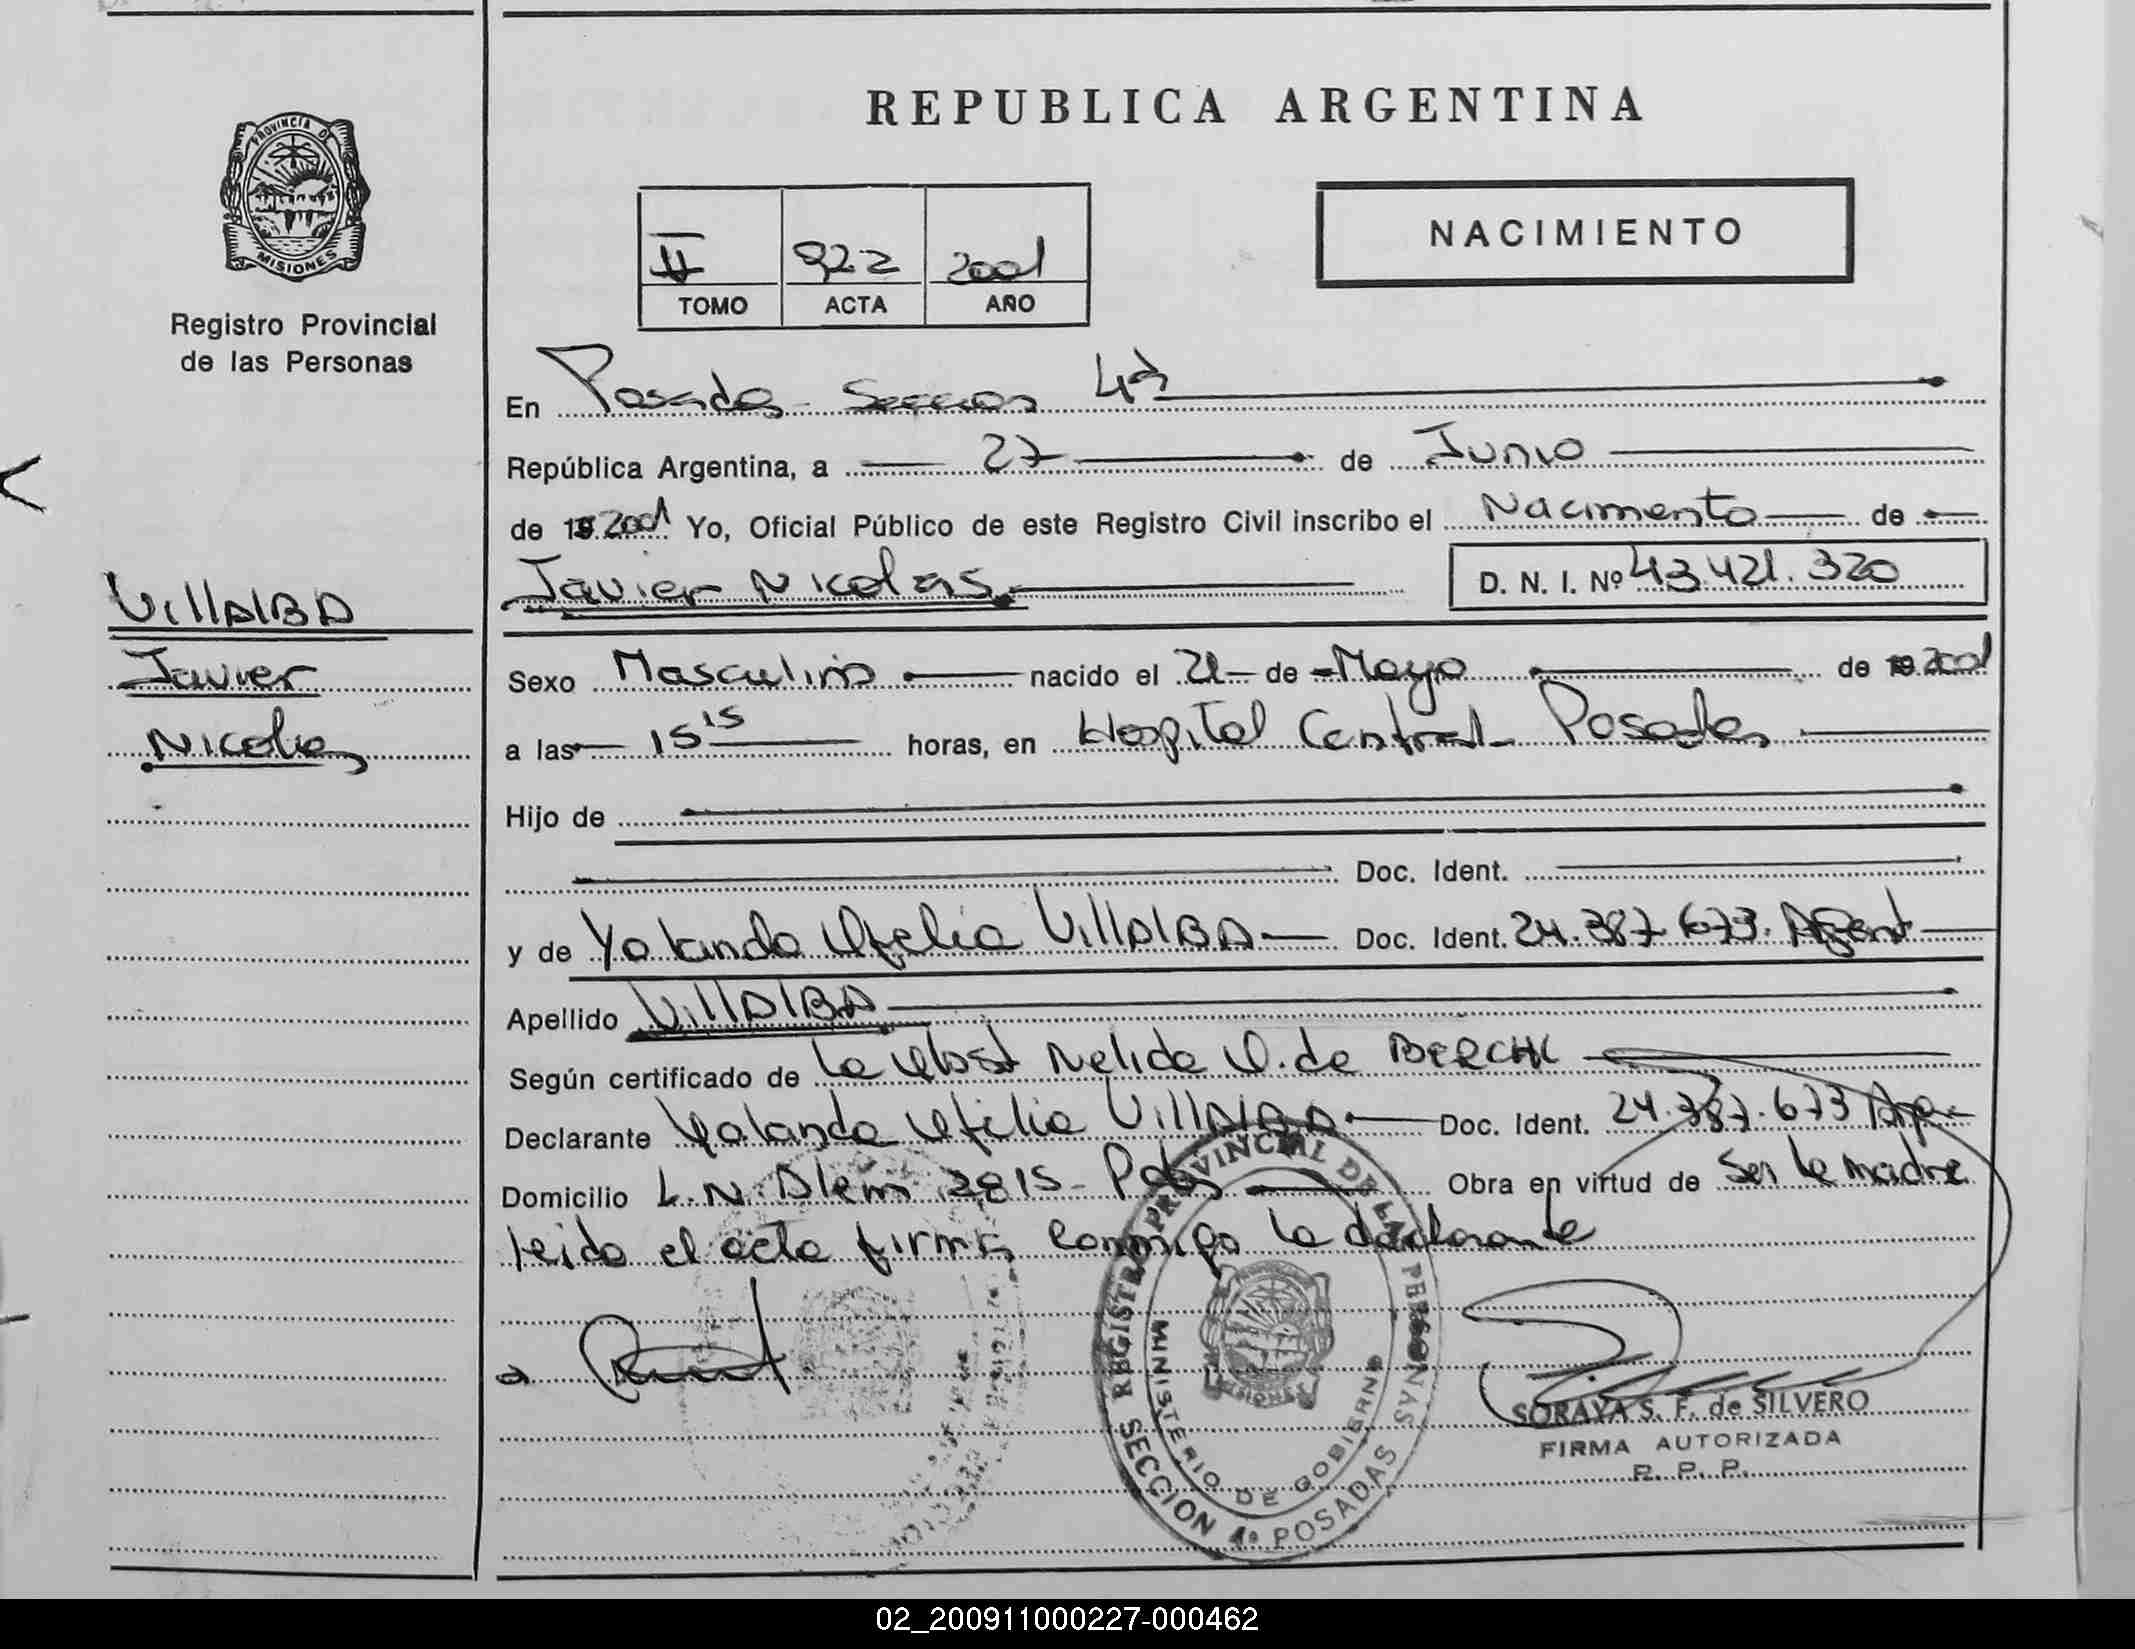 REPUBLICA ARGENTINA
PROVINCIA DE
MISIONES
Registro Provincial
de las Personas
II 922 2001
TOMO ACTA AÑO
NACIMIENTO
En Posadas - Seccion 4ª
República Argentina, a 27 de Junio
de 19 2001 Yo, Oficial Público de este Registro Civil inscribo el Nacimiento de
Javier Nicolas D. N. I. Nº 43.421.320
VillALBA
Javier
Nicolas
Sexo Masculino nacido el 21 de Mayo de 19 2001
a las 15 15 horas, en Hospital Central - Posadas
Hijo de
Doc. Ident.
y de Yolanda Ofelia VillALBA Doc. Ident. 24.387.673. Argent
Apellido VillALBA
Según certificado de la Obst Nelida O. de
Declarante Yolanda Ofelia VillALBA Doc. Ident. 24.387.673 Arg
Domicilio L.N. Alem 2815 - Pdas Obra en virtud de Ser la madre
leida el acta firma conmigo la declarante
REGISTRO PROVINCIAL DE LAS PERSONAS
MINISTERIO DE GOBIERNO
SECCION 4ª POSADAS
MISIONES
SORAYA S. F. de SILVERO
FIRMA AUTORIZADA
R. P. P.
02_200911000227-000462